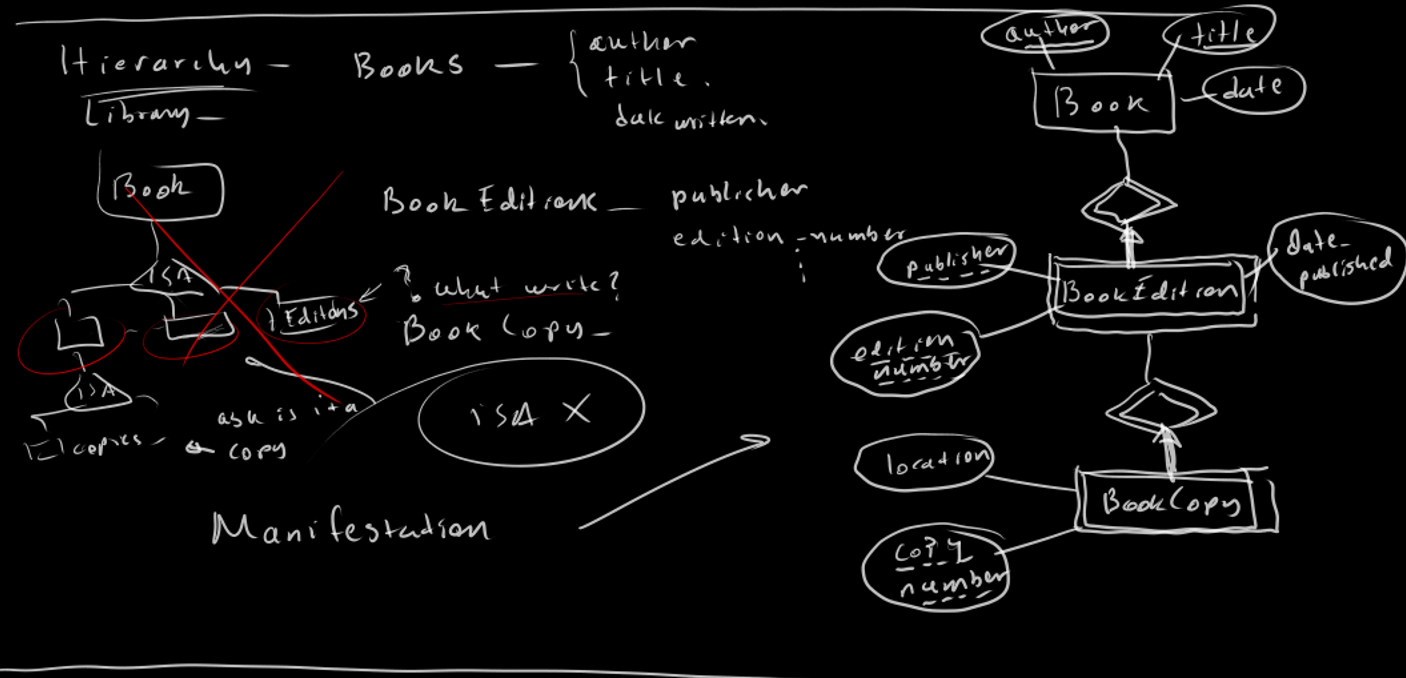 Hierarchy — Books — { author
title.
date written.
Library —
Book
ISA
Editions
ISA
copies
ask is it a
copy
Book Editions — publisher
edition-number
? what write?
Book Copy —
isA X
Manifestation
author
title
Book
date
publisher
BookEdition
date-
published
edition
number
location
BookCopy
copy
number